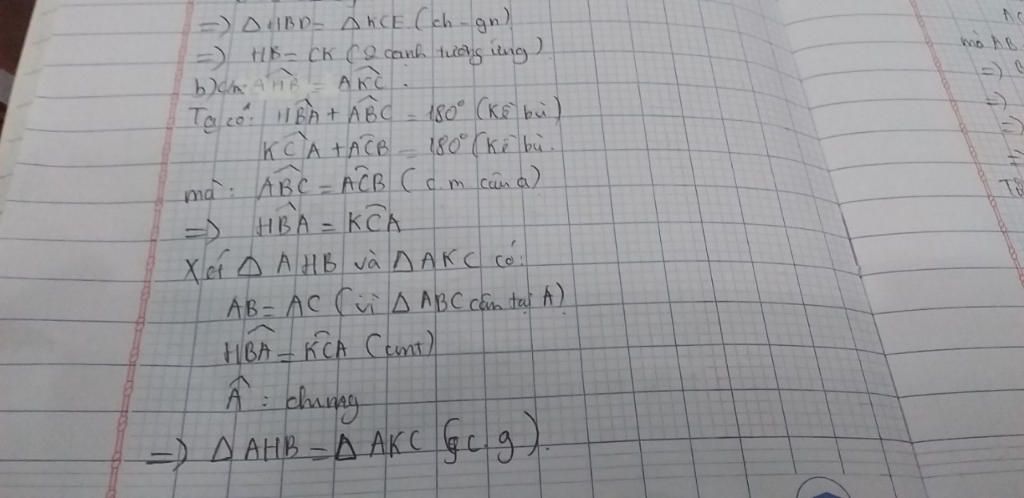 => Δ HBD = Δ KCE (ch - gn)
=> HB = CK (2 cạnh tương ứng)
b) Cm: AHB^ = AKC^.
Ta có: HBA^ + ABC^ = 180° (kề bù)
KCA^ + ACB^ = 180° (kề bù.
mà: ABC^ = ACB^ (c.m câu a)
=> HBA^ = KCA^
Xét Δ AHB và Δ AKC có:
AB = AC (vì Δ ABC cân tại A)
HBA^ = KCA^ (cmt)
A^: chung
=> Δ AHB = Δ AKC (g c g).
mà AB
=>
=>
=>
=>